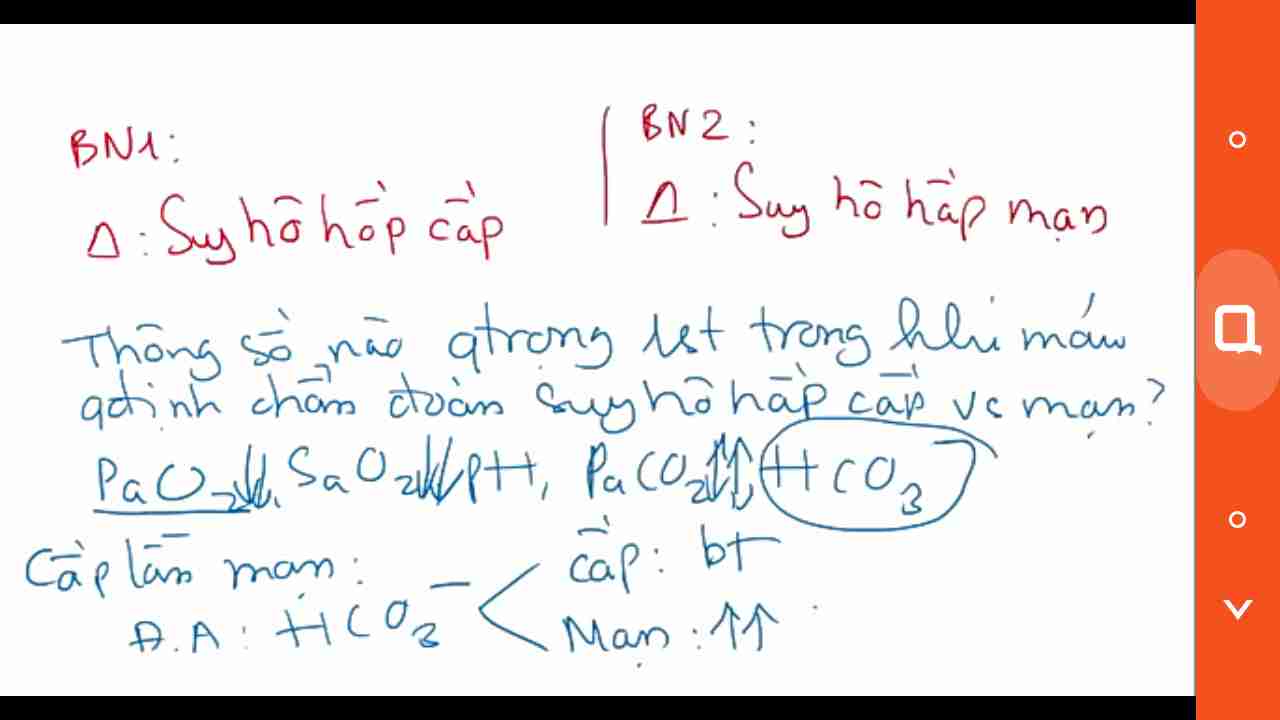 BN1:
BN2:
Δ: Suy hô hấp cấp
Δ: Suy hô hấp mạn
Thông số nào qtrọng 1st trong khí máu
qđịnh chẩn đoán suy hô hấp cấp vs mạn?
PaO2↓↓, SaO2↓↓, pH, PaCO2↑↑, HCO3-
Cấp lẫn mạn:
cấp: bt
Đ.A: HCO3-
Mạn: ↑↑